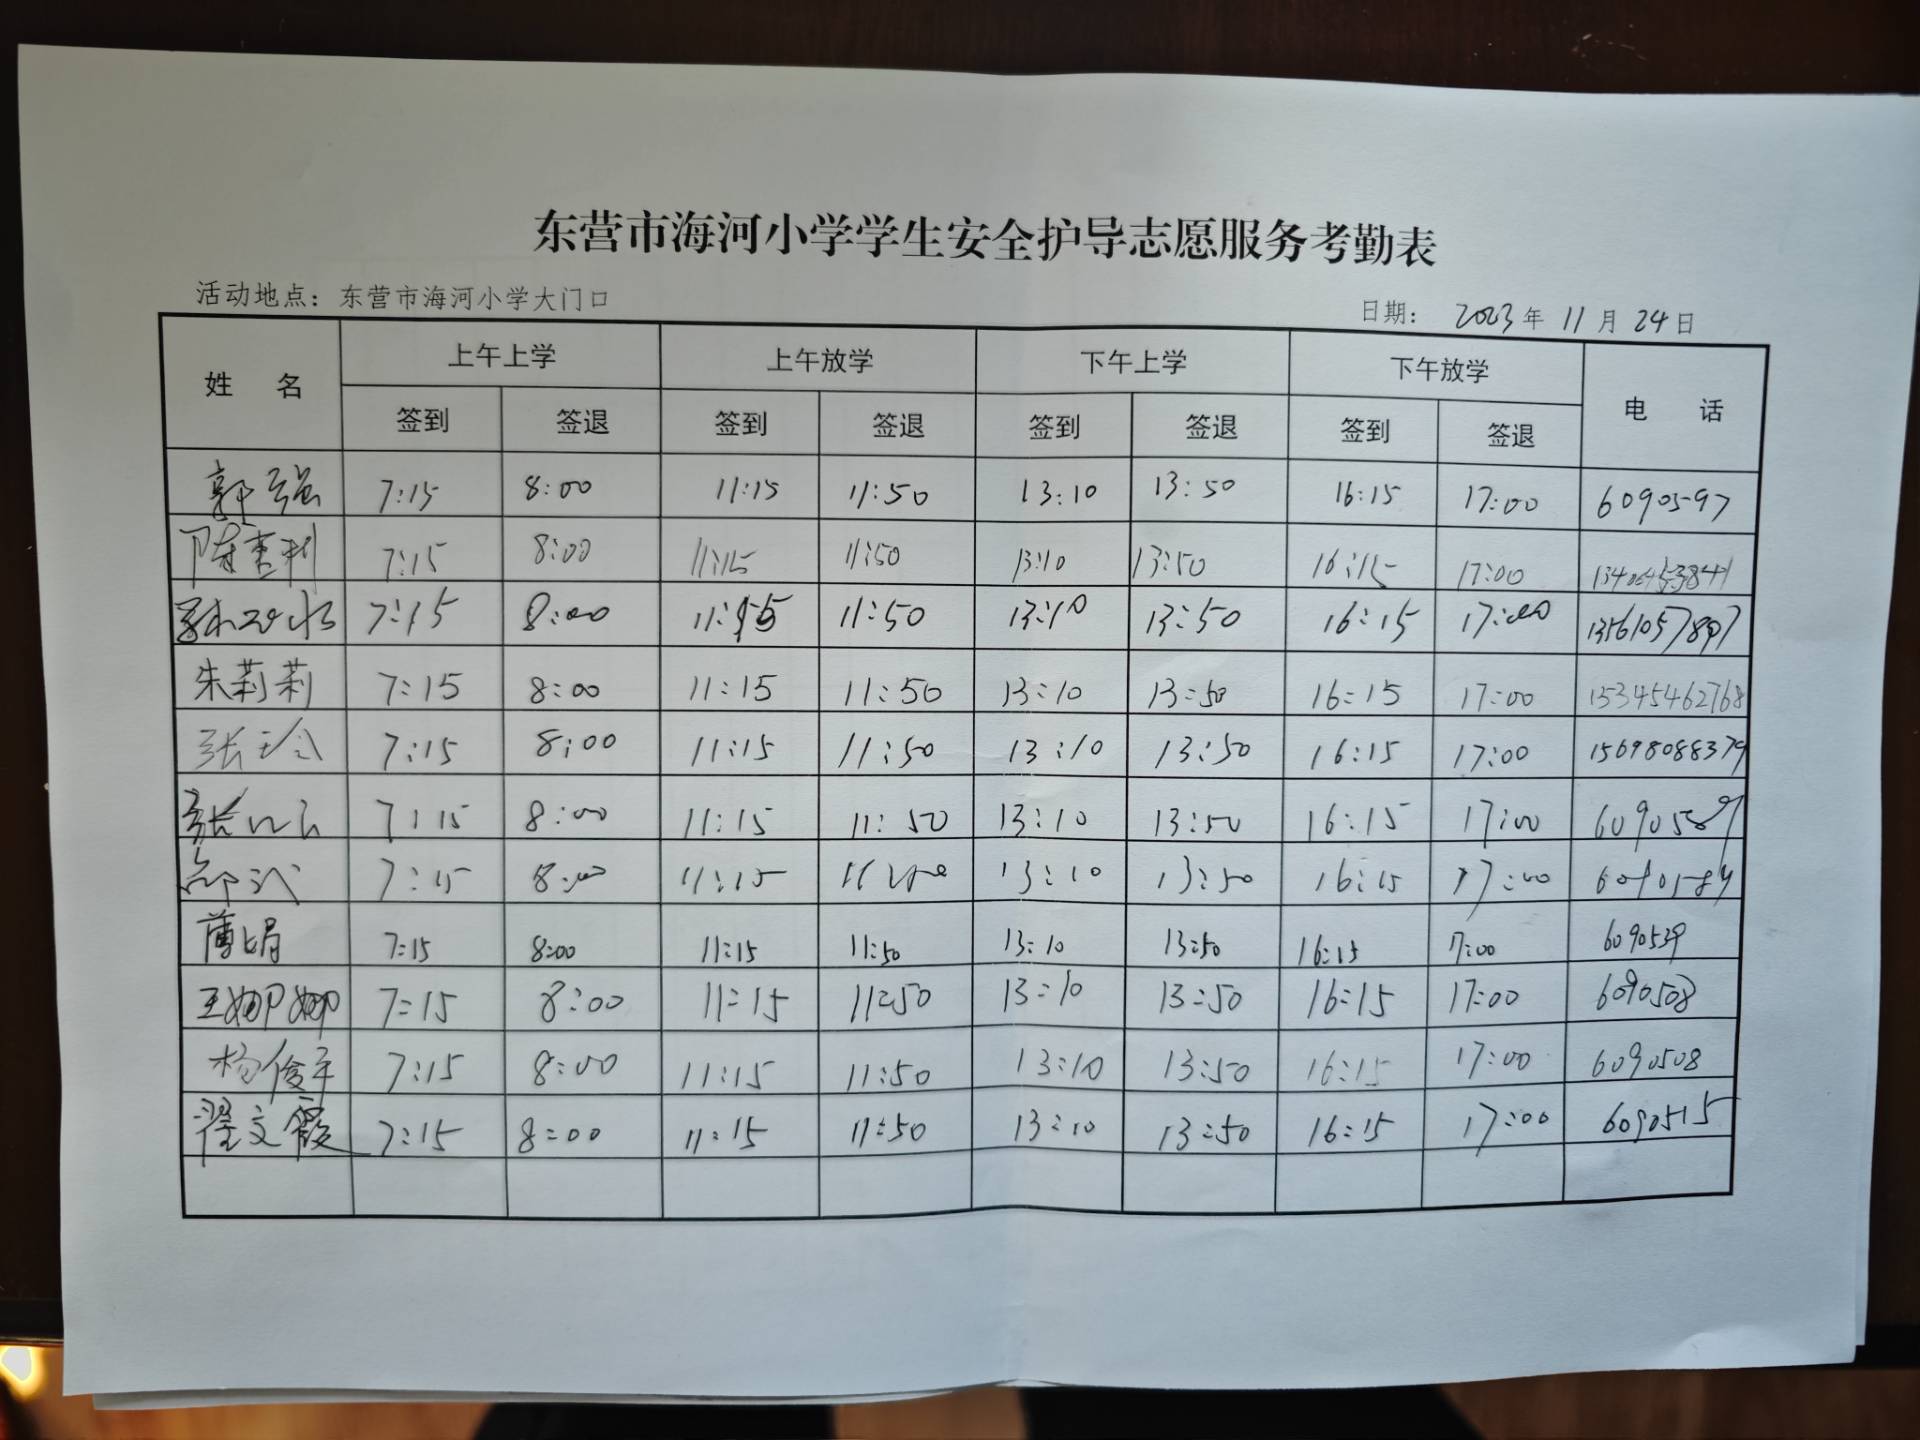 东营市海河小学学生安全护导志愿服务考勤表
活动地点：东营市海河小学大门口 日期： 2023年 11月 24日
姓 名 上午上学 上午放学 下午上学 下午放学 电 话
签到 签退 签到 签退 签到 签退 签到 签退
郭强 7:15 8:00 11:15 11:50 13:10 13:50 16:15 17:00 6090597
7:15 8:00 11:15 11:50 13:10 13:50 16:15 17:00
7:15 8:00 11:15 11:50 13:10 13:50 16:15 17:00
朱莉莉 7:15 8:00 11:15 11:50 13:10 13:50 16:15 17:00 15345462768
张玲 7:15 8:00 11:15 11:50 13:10 13:50 16:15 17:00 15698088379
7:15 8:00 11:15 11:50 13:10 13:50 16:15 17:00 6090589
7:15 8:00 11:15 13:10 13:50 16:15 17:00
7:15 8:00 11:15 11:50 13:10 13:50 16:15 17:00 6090539
王娜娜 7:15 8:00 11:15 11:50 13:10 13:50 16:15 17:00 6090508
杨俊平 7:15 8:00 11:15 11:50 13:10 13:50 16:15 17:00 6090508
翟文霞 7:15 8:00 11:15 11:50 13:10 13:50 16:15 17:00 6090515